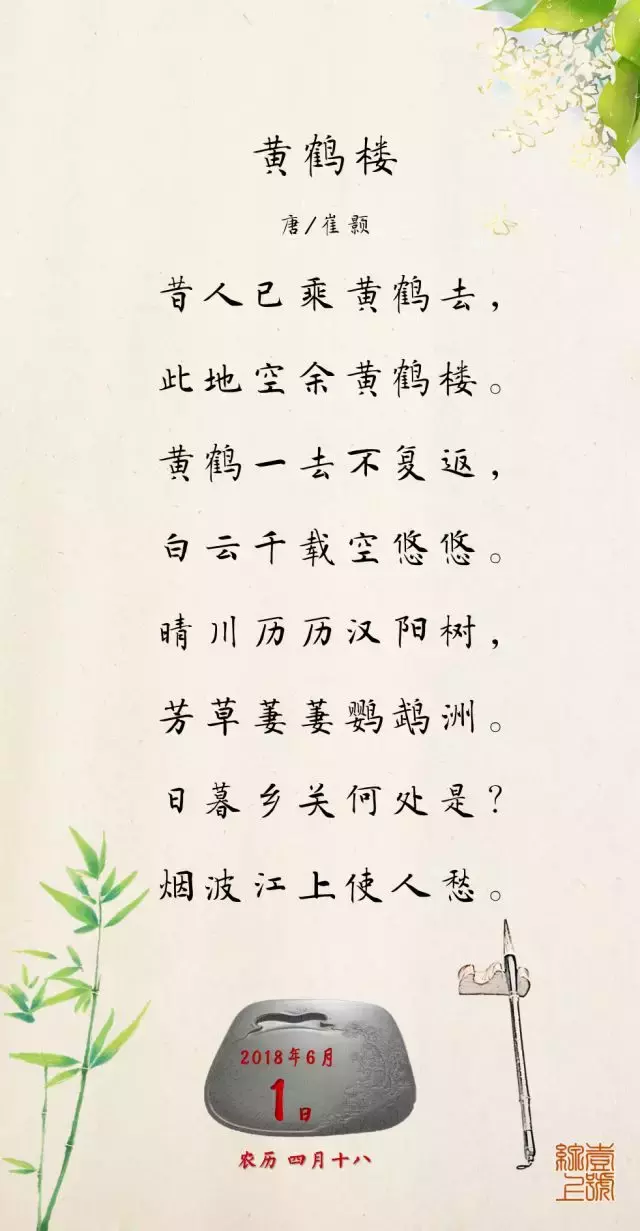 黄鹤楼
唐/崔颢
昔人已乘黄鹤去，
此地空余黄鹤楼。
黄鹤一去不复返，
白云千载空悠悠。
晴川历历汉阳树，
芳草萋萋鹦鹉洲。
日暮乡关何处是？
烟波江上使人愁。
2018年6月
1日
农历 四月十八